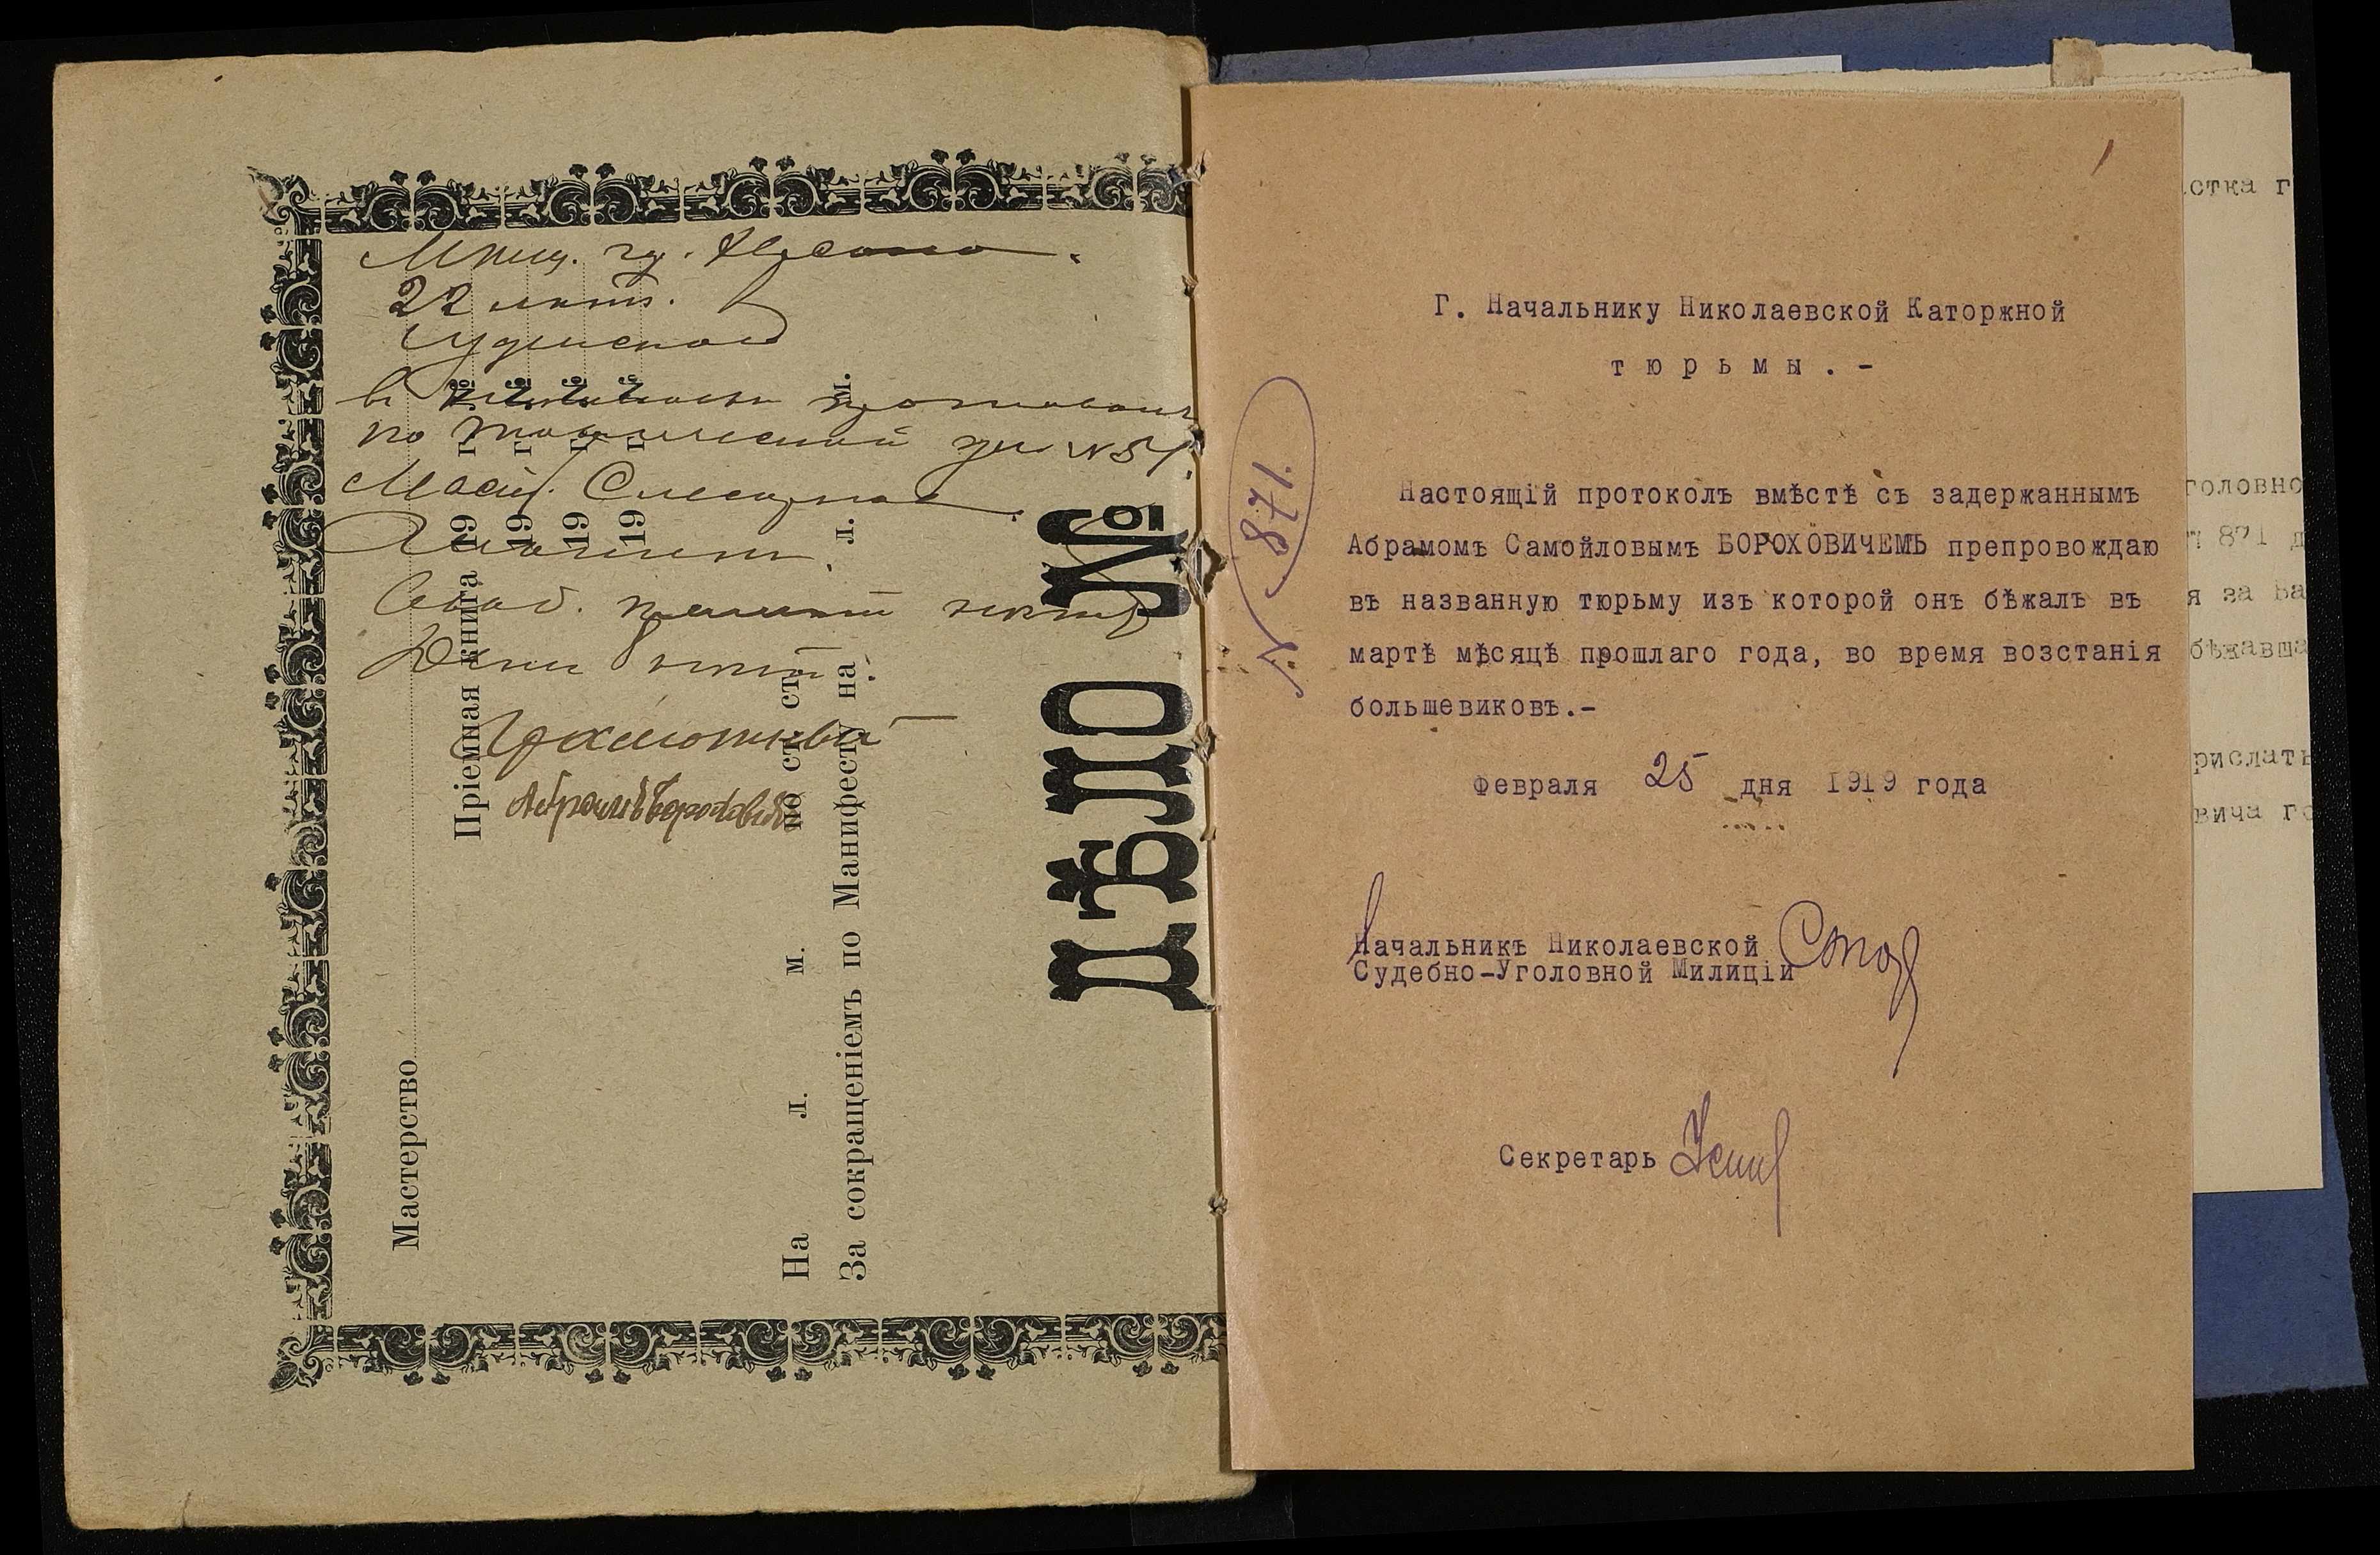 Мѣщ. гр.
22 лѣтъ.
Іудейской
в проживалъ
по ул №51.
Маст. Слесарное
Холостъ.
Грамотный
Абрамъ Бороховичъ
Мастерство
Пріемная книга
19 г.
19 г.
19 г.
19 г.
На л. м. по ст. ст.
За сокращеніемъ по Манифесту на л. м.
ДѢЛО №
1
Г. Начальнику Николаевской Каторжной
тюрьмы.-
№ 871.
Настоящій протоколъ вмѣстѣ съ задержаннымъ
Абрамомъ Самойловымъ БОРОХОВИЧЕМЪ препровождаю
въ названную тюрьму изъ которой онъ бѣжалъ въ
мартѣ мѣсяцѣ прошлаго года, во время возстанія
большевиковъ.-
Февраля 25 дня 1919 года
Начальникъ Николаевской
Судебно-Уголовной Милиціи
Секретарь
стка г
головно
871 д
я за Ва
бѣжавша
рислать
вича го